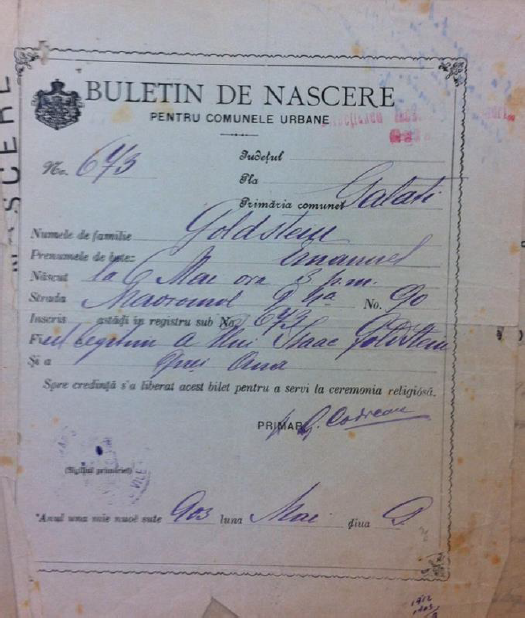 BULETIN DE NASCERE
PENTRU COMUNELE URBANE
No. 673
Județul
Pla
Primăria comunei Galati
Numele de familie Goldstein
Prenumele de botez: Emanuel
Născut la 6 Mai ora 3 p.m.
Strada No. 90
Inscris astădĭ în registru sub No. 673
Fiul legitim a lui Isaac Goldstein
Și a Ana
Spre credință s'a liberat acest bilet pentru a servi la ceremonia religiósă.
PRIMAR
(Sigiliul primăriei)
Anul una mie nouĕ sute 903 luna Mai ḑiua 9
NASCERE